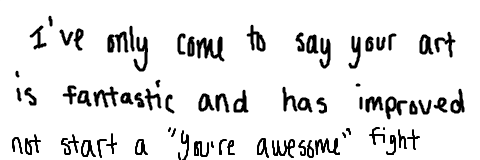 I've only come to say your art
is fantastic and has improved
not start a "You're awesome" fight